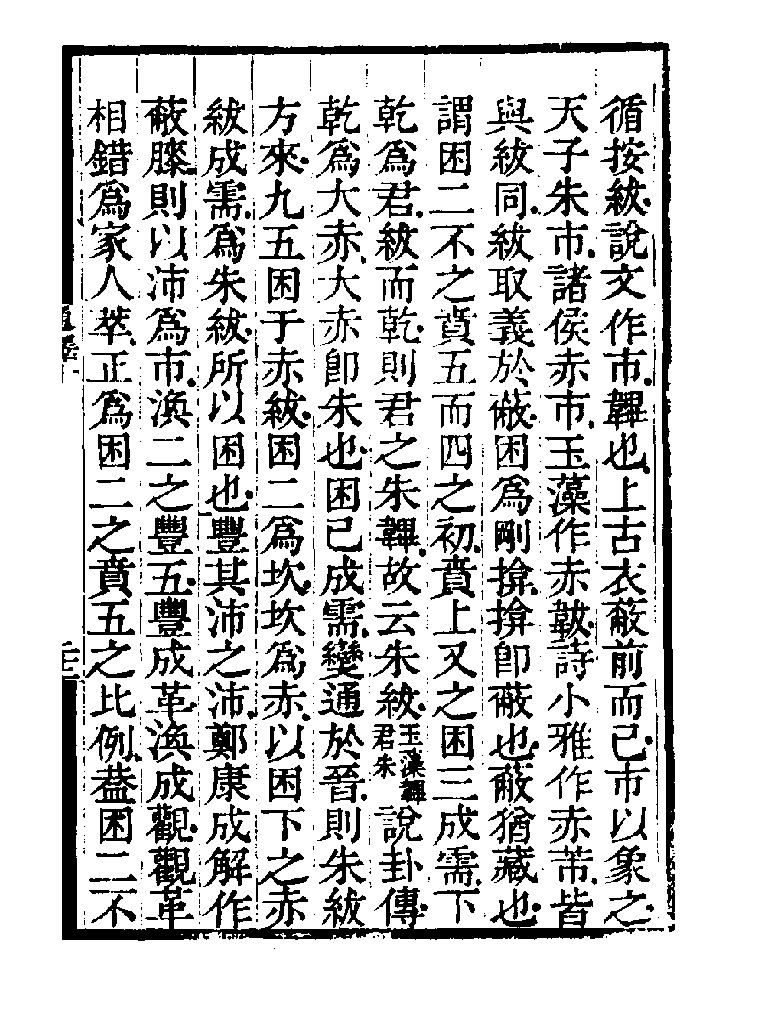 循按紱說文作巿韠也上古衣蔽前而已巿以象之
天子朱巿諸侯赤巿玉藻作赤韍詩小雅作赤芾皆
與紱同紱取義於蔽困爲剛揜揜卽蔽也蔽猶藏也
謂困二不之賁五而四之初賁上又之困三成需下
乾爲君紱而乾則君之朱韠故云朱紱玉藻韠君朱說卦傳
乾爲大赤大赤卽朱也困已成需變通於晉則朱紱
方來九五困于赤紱困二爲坎坎爲赤以困下之赤
紱成需爲朱紱所以困也豐其沛之沛鄭康成解作
蔽膝則以沛爲巿渙二之豐五豐成革渙成觀觀革
相錯爲家人萃正爲困二之賁五之比例葢困二不